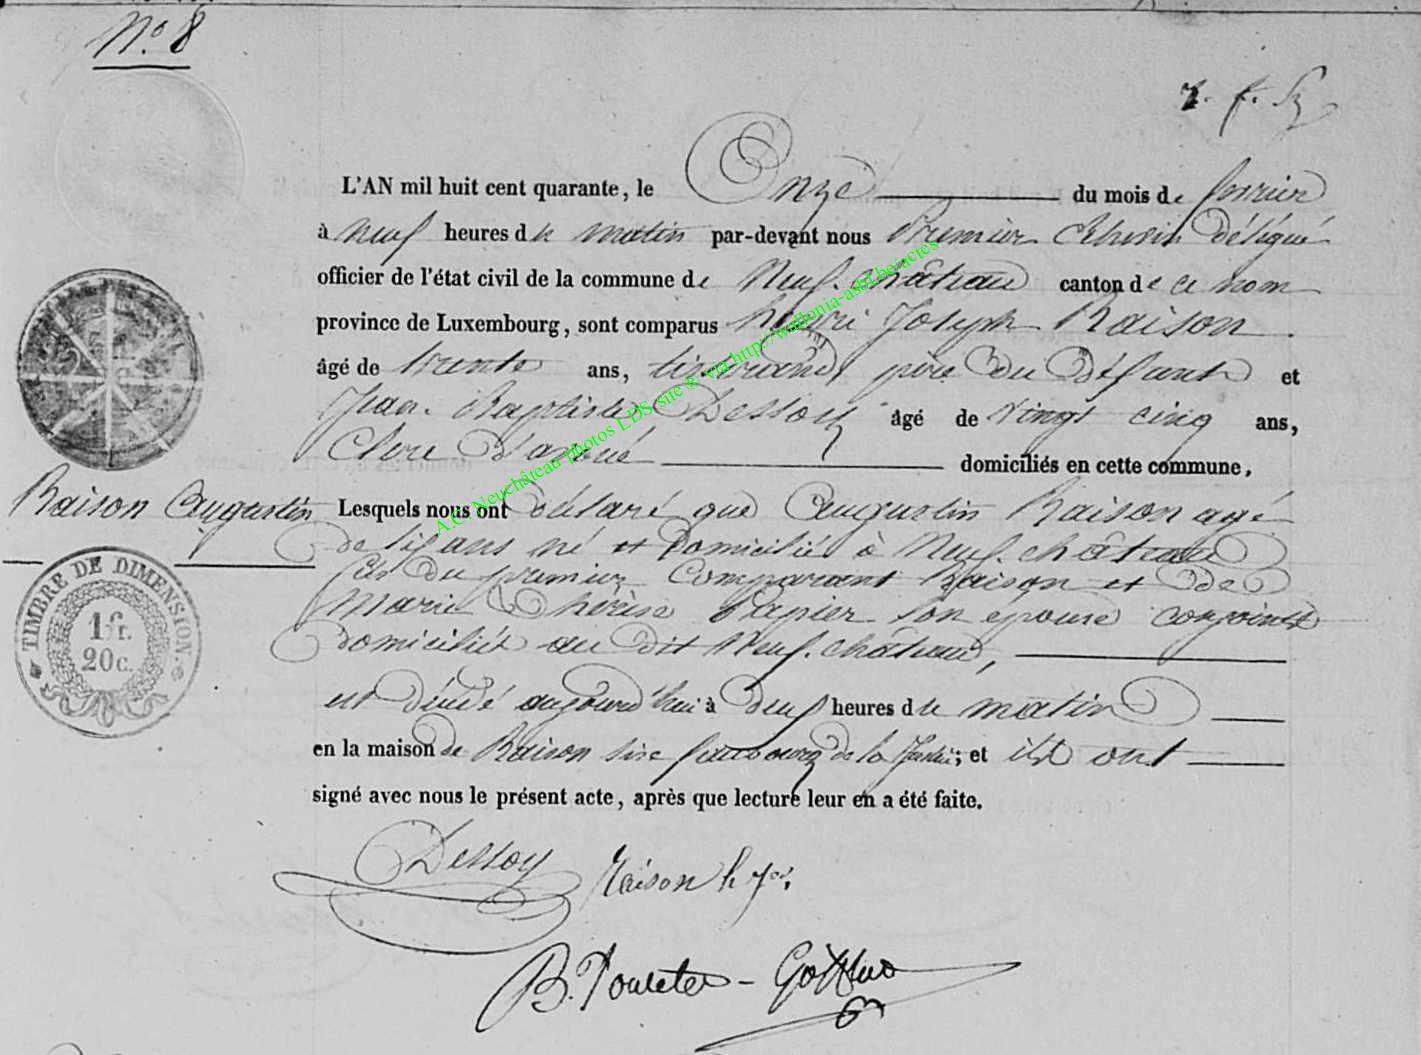 N.º 8
L'AN mil huit cent quarante, le Onze du mois de fevrier
à neuf heures du matin par-devant nous Premier Echevin Délégué
officier de l'état civil de la commune de Neuf-château canton de ce nom
province de Luxembourg, sont comparus henri Joseph Raison
âgé de trente ans, tisserand, père du Défunt et
Jean Baptiste Dessoy âgé de vingt cinq ans,
Clerc d'avoué domiciliés en cette commune,
Raison Augustin
Lesquels nous ont déclaré que Augustin Raison agé
de six ans né et domicilié à Neuf-château
fils du premier Comparant Raison et de
Marie Thérèse Papier son epouse conjoints
domiciliés au dit Neuf-château,
est décédé aujourd'hui à deux heures du matin
en la maison de Raison sise faubourg de la ; et ils ont
signé avec nous le présent acte, après que lecture leur en a été faite.
TIMBRE DE DIMENSION.
1 fr.
20c.
Dessoy Raison h Jos.
B. Poncelet - Gofflno
A.C. Neuchâteau photos LDS, site ® via http://wallonia-asbl.be/actes